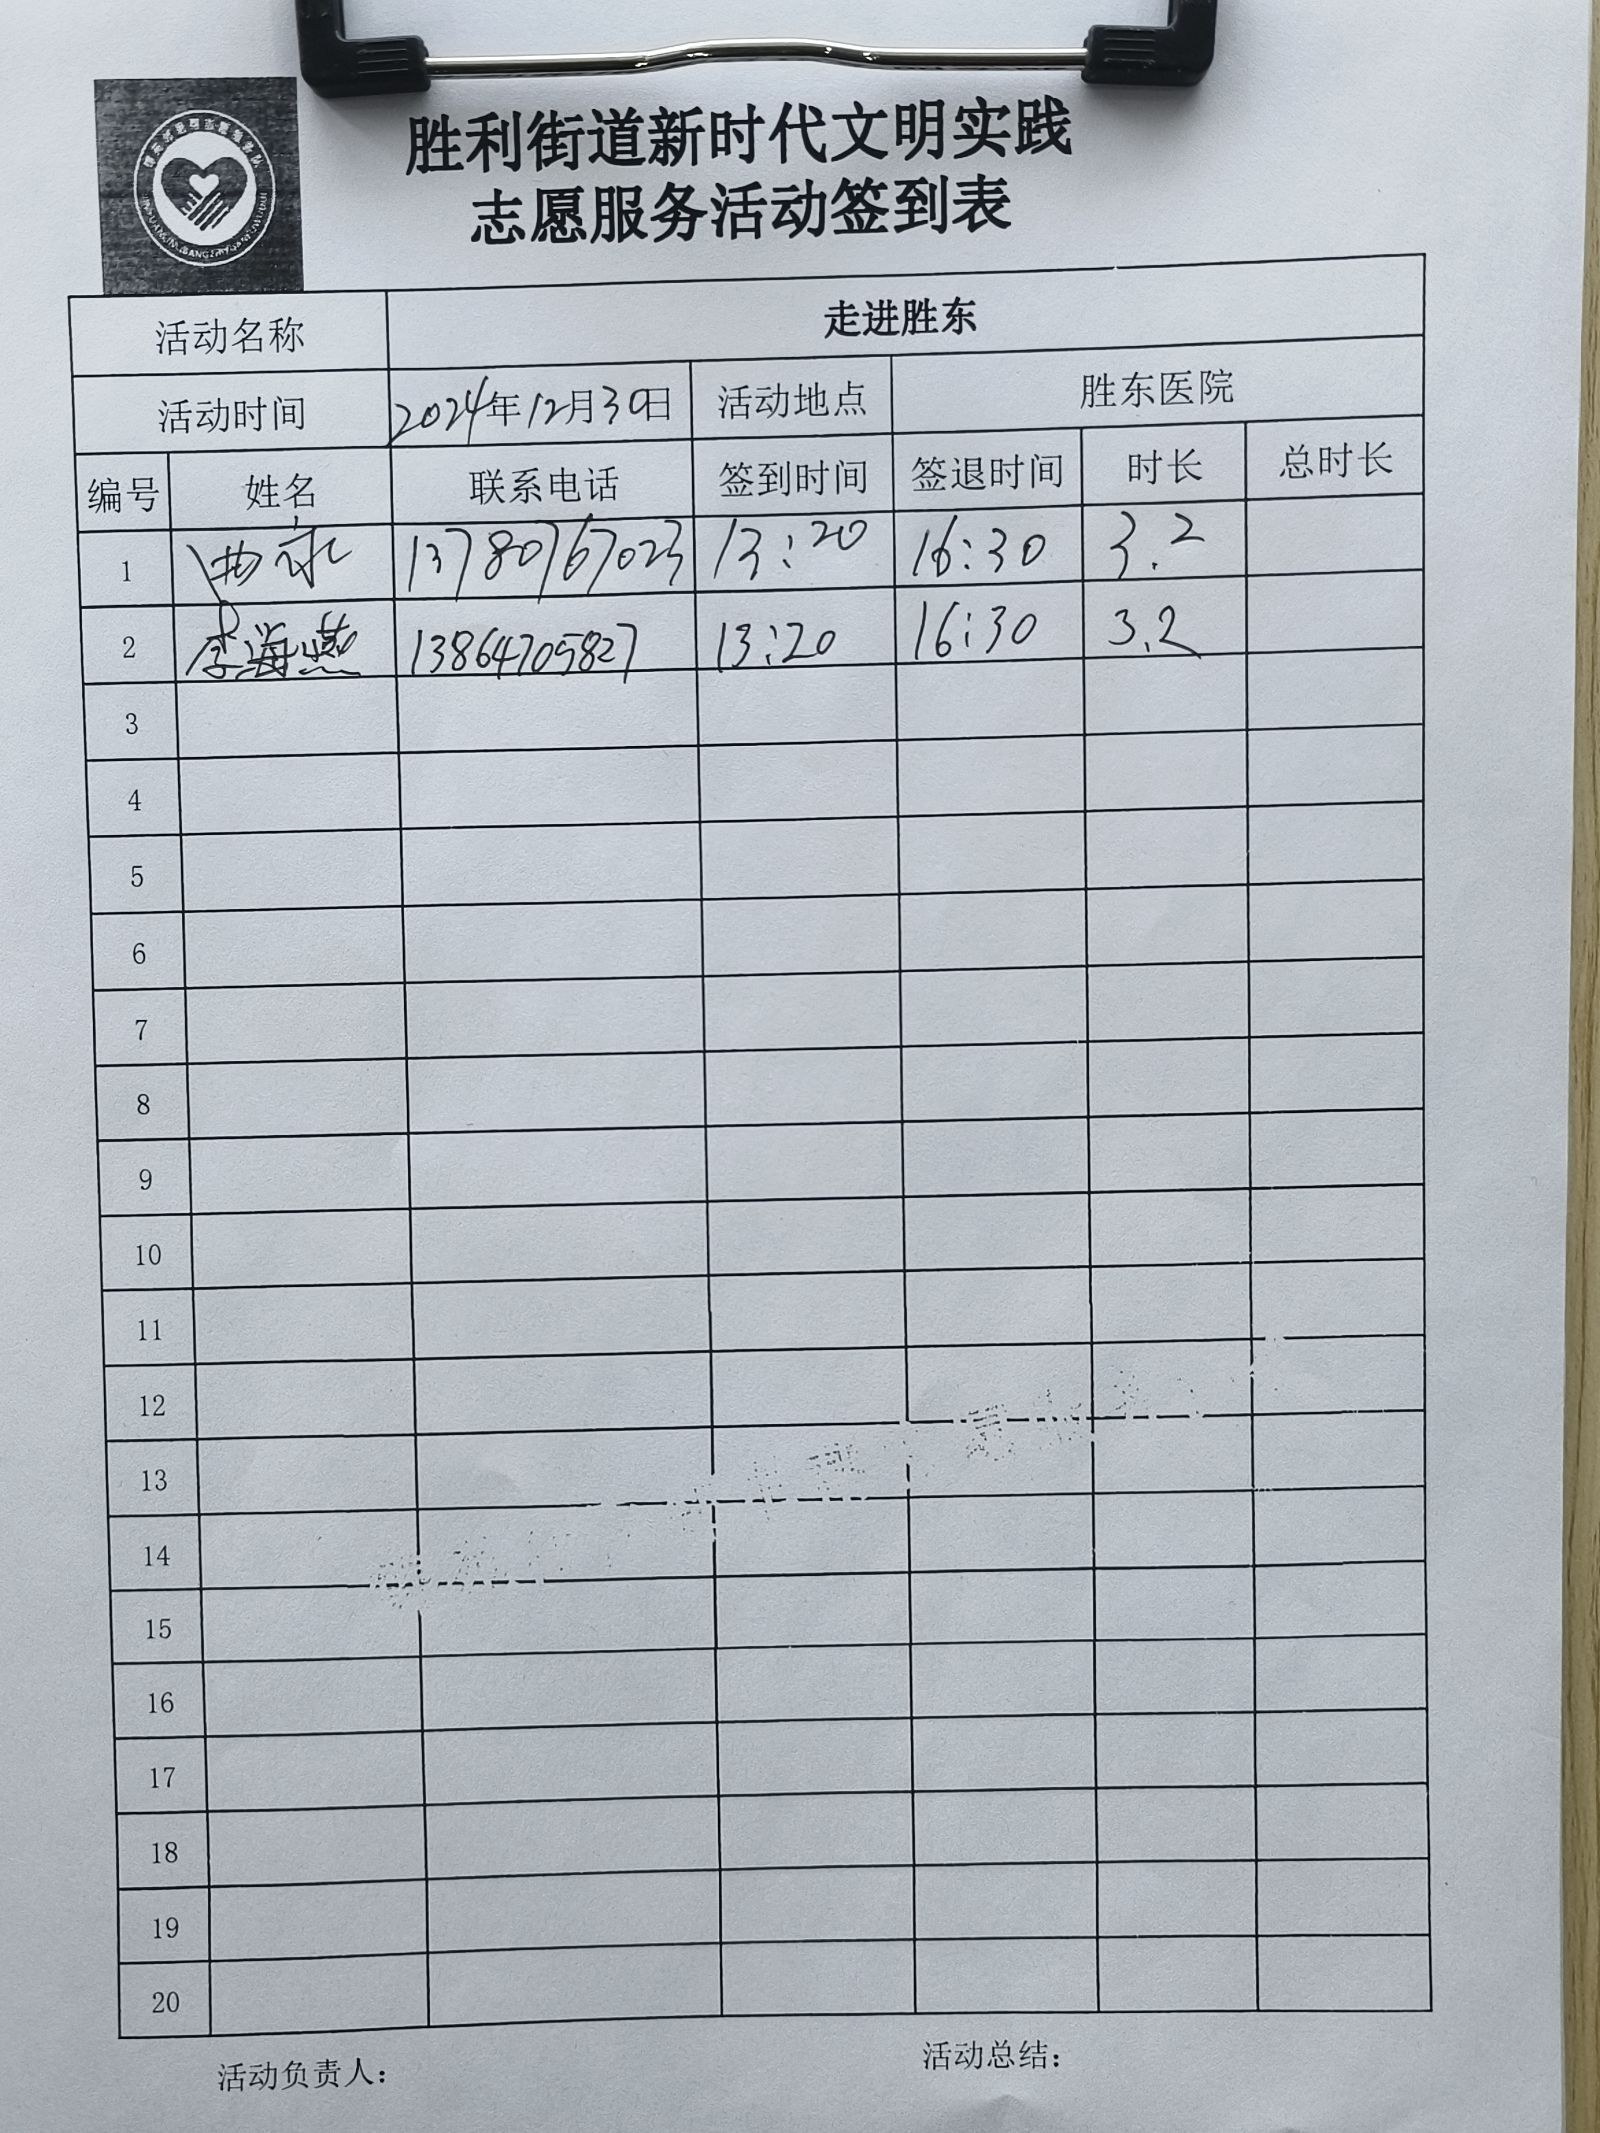 胜利街道新时代文明实践
志愿服务活动签到表
活动名称 走进胜东
活动时间 2024年12月30日 活动地点 胜东医院
编号 姓名 联系电话 签到时间 签退时间 时长 总时长
1 13780767023 13:20 16:30 3.2
2 李海燕 13864705827 13:20 16:30 3.2
3
4
5
6
7
8
9
10
11
12
13
14
15
16
17
18
19
20
活动负责人: 活动总结: